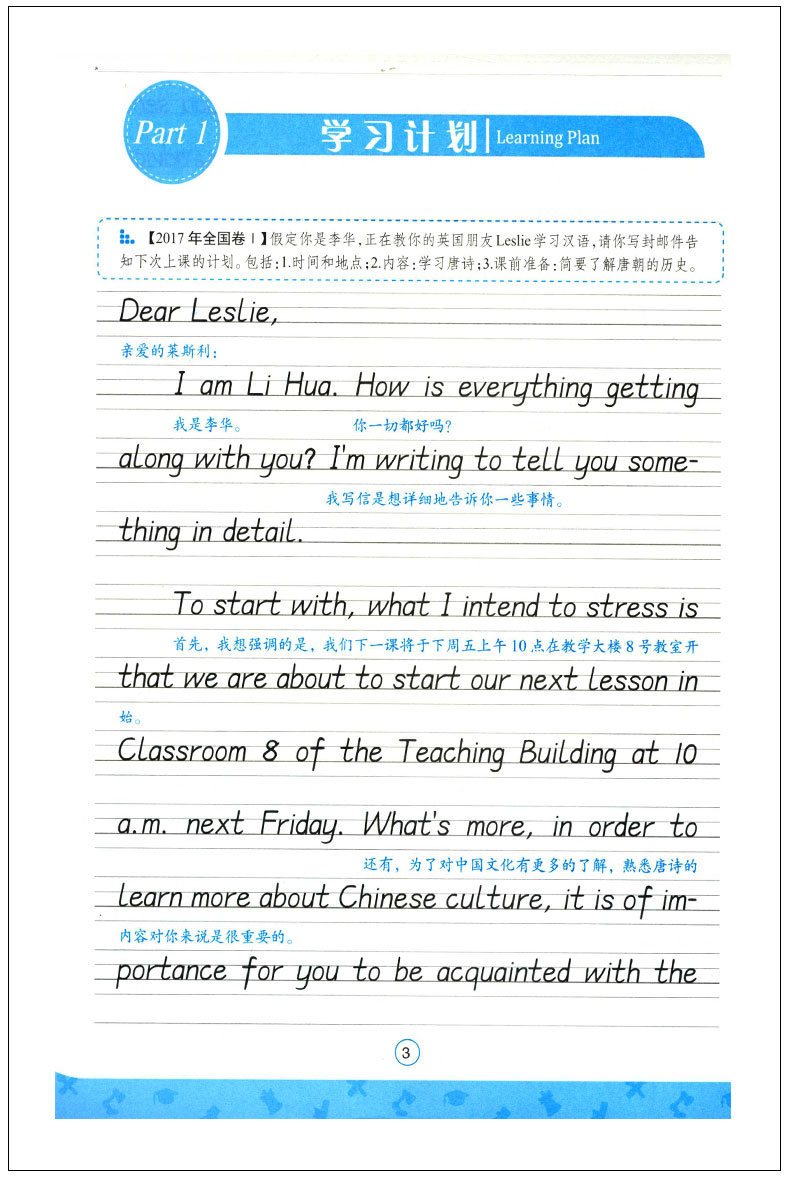 Part 1
学习计划 Learning Plan
【2017年全国卷Ⅰ】假定你是李华,正在教你的英国朋友Leslie学习汉语,请你写封邮件告
知下次上课的计划。包括:1.时间和地点;2.内容:学习唐诗;3.课前准备:简要了解唐朝的历史。
Dear Leslie,
亲爱的莱斯利:
I am Li Hua. How is everything getting
我是李华。 你一切都好吗?
along with you? I'm writing to tell you some-
我写信是想详细地告诉你一些事情。
thing in detail.
To start with, what I intend to stress is
首先,我想强调的是,我们下一课将于下周五上午10点在教学大楼8号教室开
that we are about to start our next lesson in
始。
Classroom 8 of the Teaching Building at 10
a.m. next Friday. What's more, in order to
还有,为了对中国文化有更多的了解,熟悉唐诗的
learn more about Chinese culture, it is of im-
内容对你来说是很重要的。
portance for you to be acquainted with the
3